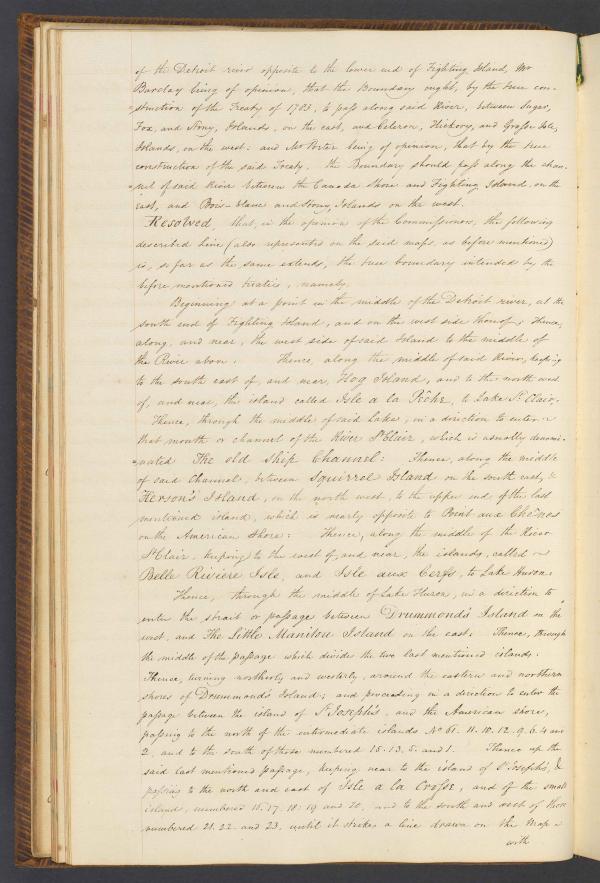 of the Detroit river opposite to the lower end of Fighting Island, Mr
Barclay being of opinion, that the Boundary ought, by the true con-
=struction of the Treaty of 1783, to pass along said River, between Sugar,
Fox, and Stony, Islands, on the east, and Celeron, Hickory, and Grosse Isle,
Islands, on the west: and Mr Porter being of opinion, that by the true
construction of the said Treaty, the Boundary should pass along the chan-
=nel of said River between the Canada shore and Fighting Island, on the
east, and Bois-blanc and Stony, Islands on the west.
Resolved, that, in the opinion of the Commissioners, the following
described line (also represented on the said maps, as before mentioned)
is, so far as the same extends, the true boundary intended by the
before mentioned treaties, namely,
Beginning at a point in the middle of the Detroit river, at the
south end of Fighting Island, and on the west side thereof; Thence,
along, and near, the west side of said Island to the middle of
the River above. Thence, along the middle of said River, keeping
to the south east of, and near, Hog Island, and to the north west
of, and near, the island called Isle a la Pêche, to Lake St Clair.
Thence, through the middle of said Lake, in a direction to enter
that mouth or channel of the River St Clair, which is usually denomi-
=nated The old Ship Channel: Thence, along the middle
of said Channel, between Squirrel Island on the south east, &
Herson's Island, on the north west, to the upper end of the last
mentioned island, which is nearly opposite to Point aux Chênes
on the American Shore: Thence, along the middle of the River
St Clair, keeping to the west of, and near, the islands, called
Belle Rivière Isle, and Isle aux Cerfs, to Lake Huron:
Thence, through the middle of Lake Huron, in a direction to
enter the strait or passage between Drummond's Island on the
west, and The Little Manitou Island on the east. Thence, through
the middle of the passage which divides the two last mentioned islands.
Thence, turning northerly and westerly, around the eastern and northern
shores of Drummond's Island; and proceeding in a direction to enter the
passage between the island of St Joseph's, and the American shore,
passing to the north of the intermediate islands No 61. 11. 10. 12. 9. 6. 4 and
2, and to the south of those numbered 15. 13. 5. and 1. Thence up the
said last mentioned passage, keeping near to the island of St Joseph's, &
passing to the north and east of Isle a la Crosse, and of the small
islands, numbered 16. 17. 18. 19 and 20, and to the south and west of those
numbered 21. 22. and 23, until it strikes a line drawn on the map
with